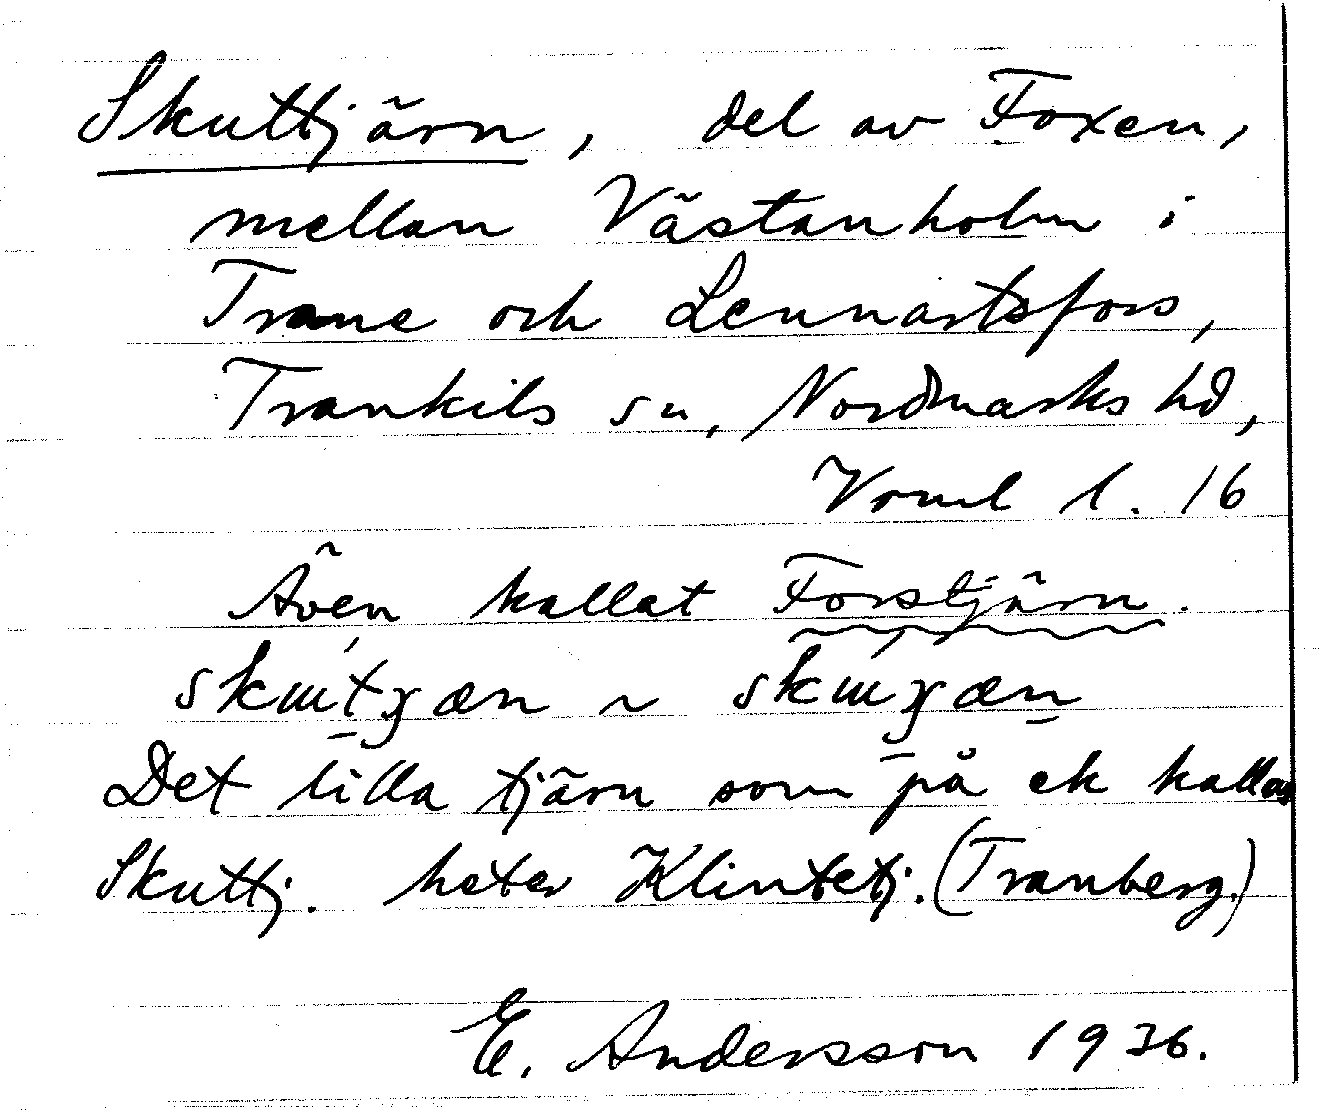 Skuttjärn, del av Foxen,
mellan Västanholm i
Trane och Lennartsfors,
Trankils sn, Nordmarks hd,
Vrml l. 16
Även kallat Forstjärn.
Det lilla tjärn som på ek kallas
Skuttj. heter Klintetj. (Tranberg.)
E. Andersson 1936.